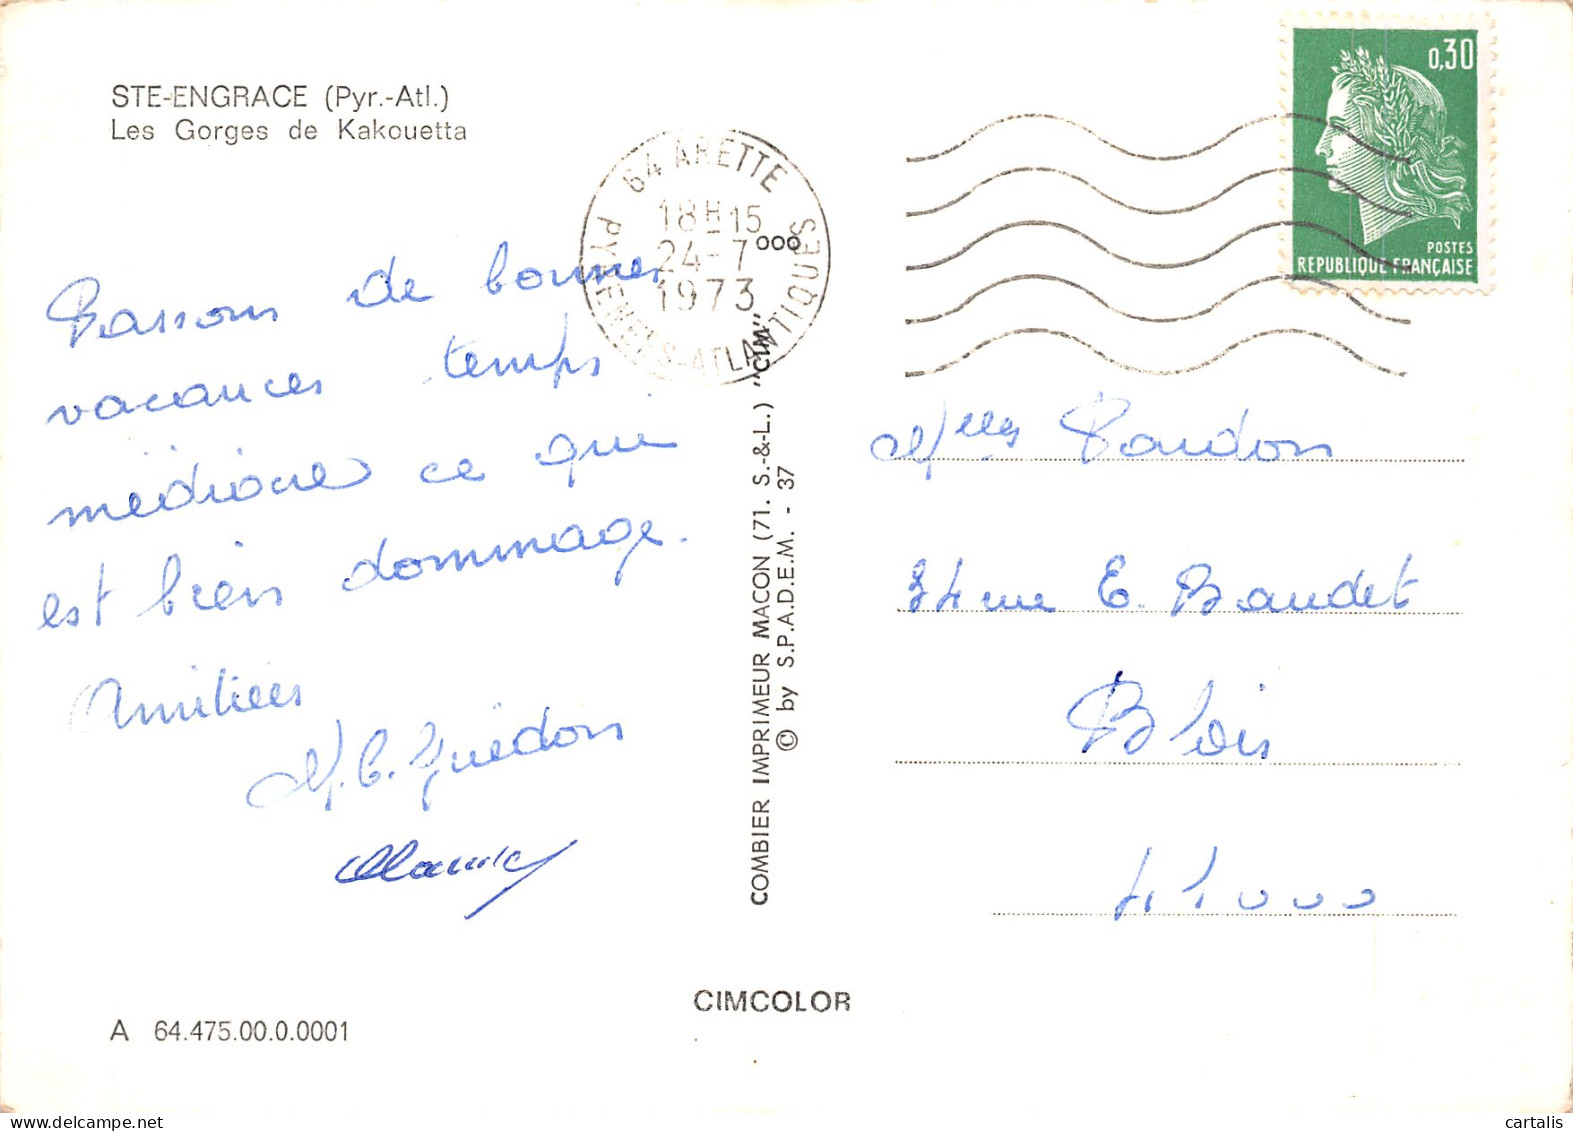 STE-ENGRACE (Pyr.-Atl.)
Les Gorges de Kakouetta
64 ARETTE
18H15
24-7
1973
PYRENEES-ATLANTIQUES
0,30
POSTES
REPUBLIQUE FRANÇAISE
Passons de bonnes
vacances temps
médiocre ce qui
est bien dommage.
Amitiés
M.C. Guédon
COMBIER IMPRIMEUR MACON (71. S.-&-L.) "CIM" ooo
© by S.P.A.D.E.M. - 37
Mlles
34 rue E. Baudet
Blois
41000
CIMCOLOR
A 64.475.00.0.0001
cartalis
delcampe.net